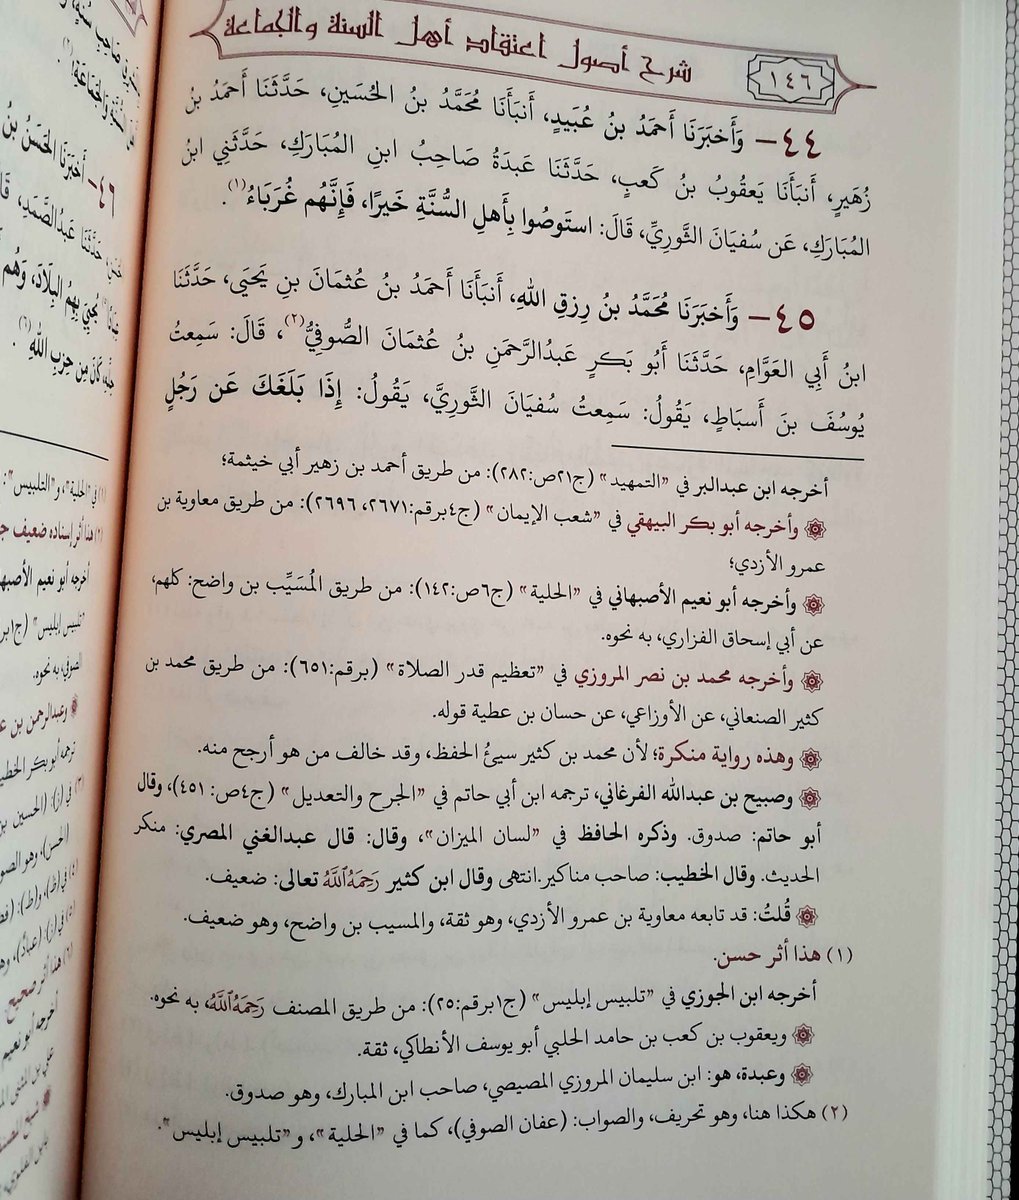 ١٤٦ شرح أصول اعتقاد أهل السنة والجماعة
٤٤ – وَأَخبَرَنَا أَحمَدُ بنُ عُبَيدٍ، أَنبَأَنَا مُحَمَّدُ بنُ الحُسَينِ، حَدَّثَنَا أَحمَدُ بنُ
زُهَيرٍ، أَنبَأَنَا يَعقُوبُ بنُ كَعبٍ، حَدَّثَنَا عَبدَةُ صَاحِبُ ابنِ المُبَارَكِ، حَدَّثَنِي ابنُ
المُبَارَكِ، عَن سُفيَانَ الثَّورِيِّ، قَالَ: استَوصُوا بِأَهلِ السُّنَّةِ خَيرًا، فَإِنَّهُم غُرَبَاءُ(١).
٤٥ – وَأَخبَرَنَا مُحَمَّدُ بنُ رِزقِ اللهِ، أَنبَأَنَا أَحمَدُ بنُ عُثمَانَ بنِ يَحيَى، حَدَّثَنَا
ابنُ أَبِي العَوَّامِ، حَدَّثَنَا أَبُو بَكرٍ عَبدُالرَّحمَنِ بنُ عُثمَانَ الصُّوفِيُّ(٢)، قَالَ: سَمِعتُ
يُوسُفَ بنَ أَسبَاطٍ، يَقُولُ: سَمِعتُ سُفيَانَ الثَّورِيَّ، يَقُولُ: إِذَا بَلَغَكَ عَن رَجُلٍ
أخرجه ابن عبدالبر في "التمهيد" (ج٢١ص:٢٨٢): من طريق أحمد بن زهير أبي خيثمة؛
وأخرجه أبو بكر البيهقي في "شعب الإيمان" (ج٤برقم:٢٦٧١، ٢٦٩٦): من طريق معاوية بن
عمرو الأزدي؛
وأخرجه أبو نعيم الأصبهاني في "الحلية" (ج٦ص:١٤٢): من طريق المُسَيِّب بن واضح: كلهم،
عن أبي إسحاق الفزاري، به نحوه.
وأخرجه محمد بن نصر المروزي في "تعظيم قدر الصلاة" (برقم:٦٥١): من طريق محمد بن
كثير الصنعاني، عن الأوزاعي، عن حسان بن عطية قوله.
وهذه رواية منكرة؛ لأن محمد بن كثير سيئُ الحفظ، وقد خالف من هو أرجح منه.
وصبيح بن عبدالله الفرغاني، ترجمه ابن أبي حاتم في "الجرح والتعديل" (ج٤ص: ٤٥١)، وقال
أبو حاتم: صدوق. وذكره الحافظ في "لسان الميزان"، وقال: قال عبدالغني المصري: منكر
الحديث. وقال الخطيب: صاحب مناكير.انتهى وقال ابن كثير رَحِمَهُ ٱللَّهُ تعالى: ضعيف.
قُلتُ: قد تابعه معاوية بن عمرو الأزدي، وهو ثقة، والمسيب بن واضح، وهو ضعيف.
(١) هذا أثر حسن.
أخرجه ابن الجوزي في "تلبيس إبليس" (ج١برقم:٢٥): من طريق المصنف رَحِمَهُ ٱللَّهُ، به نحوه.
ويعقوب بن كعب بن حامد الحلبي أبو يوسف الأنطاكي، ثقة.
وعبدة، هو: ابن سليمان المروزي المصيصي، صاحب ابن المبارك، وهو صدوق.
(٢) هكذا هنا، وهو تحريف، والصواب: (عفان الصوفي)، كما في "الحلية"، و"تلبيس إبليس".
٤٦ – أَخبَرَنَا الحَسَنُ بنُ
حَدَّثَنَا عَبدُالصَّمَدِ، قَا
يُحيِي بِهِمُ البِلَادَ، وَهُم
كَانَ مِن حِزبِ اللهِ(٦).
(١) في "الحلية"، و"التلبيس":
(٢) هذا أثر إسناده ضعيف
أخرجه أبو نعيم الأصبه
"تلبيس إبليس" (ج١بر
الصوفي، به نحوه.
وعبدالرحمن بن ع
ترجمه أبو بكر الخطي
(٣) في (ز): (الحسين بن
(الحسن)، وهو الصو
(٤) في (ظ)، و(ط): (ف
(٥) في (ز): (عباد)، وه
(٦) هذا أثر صحيح.
أخرجه أبو نعيم